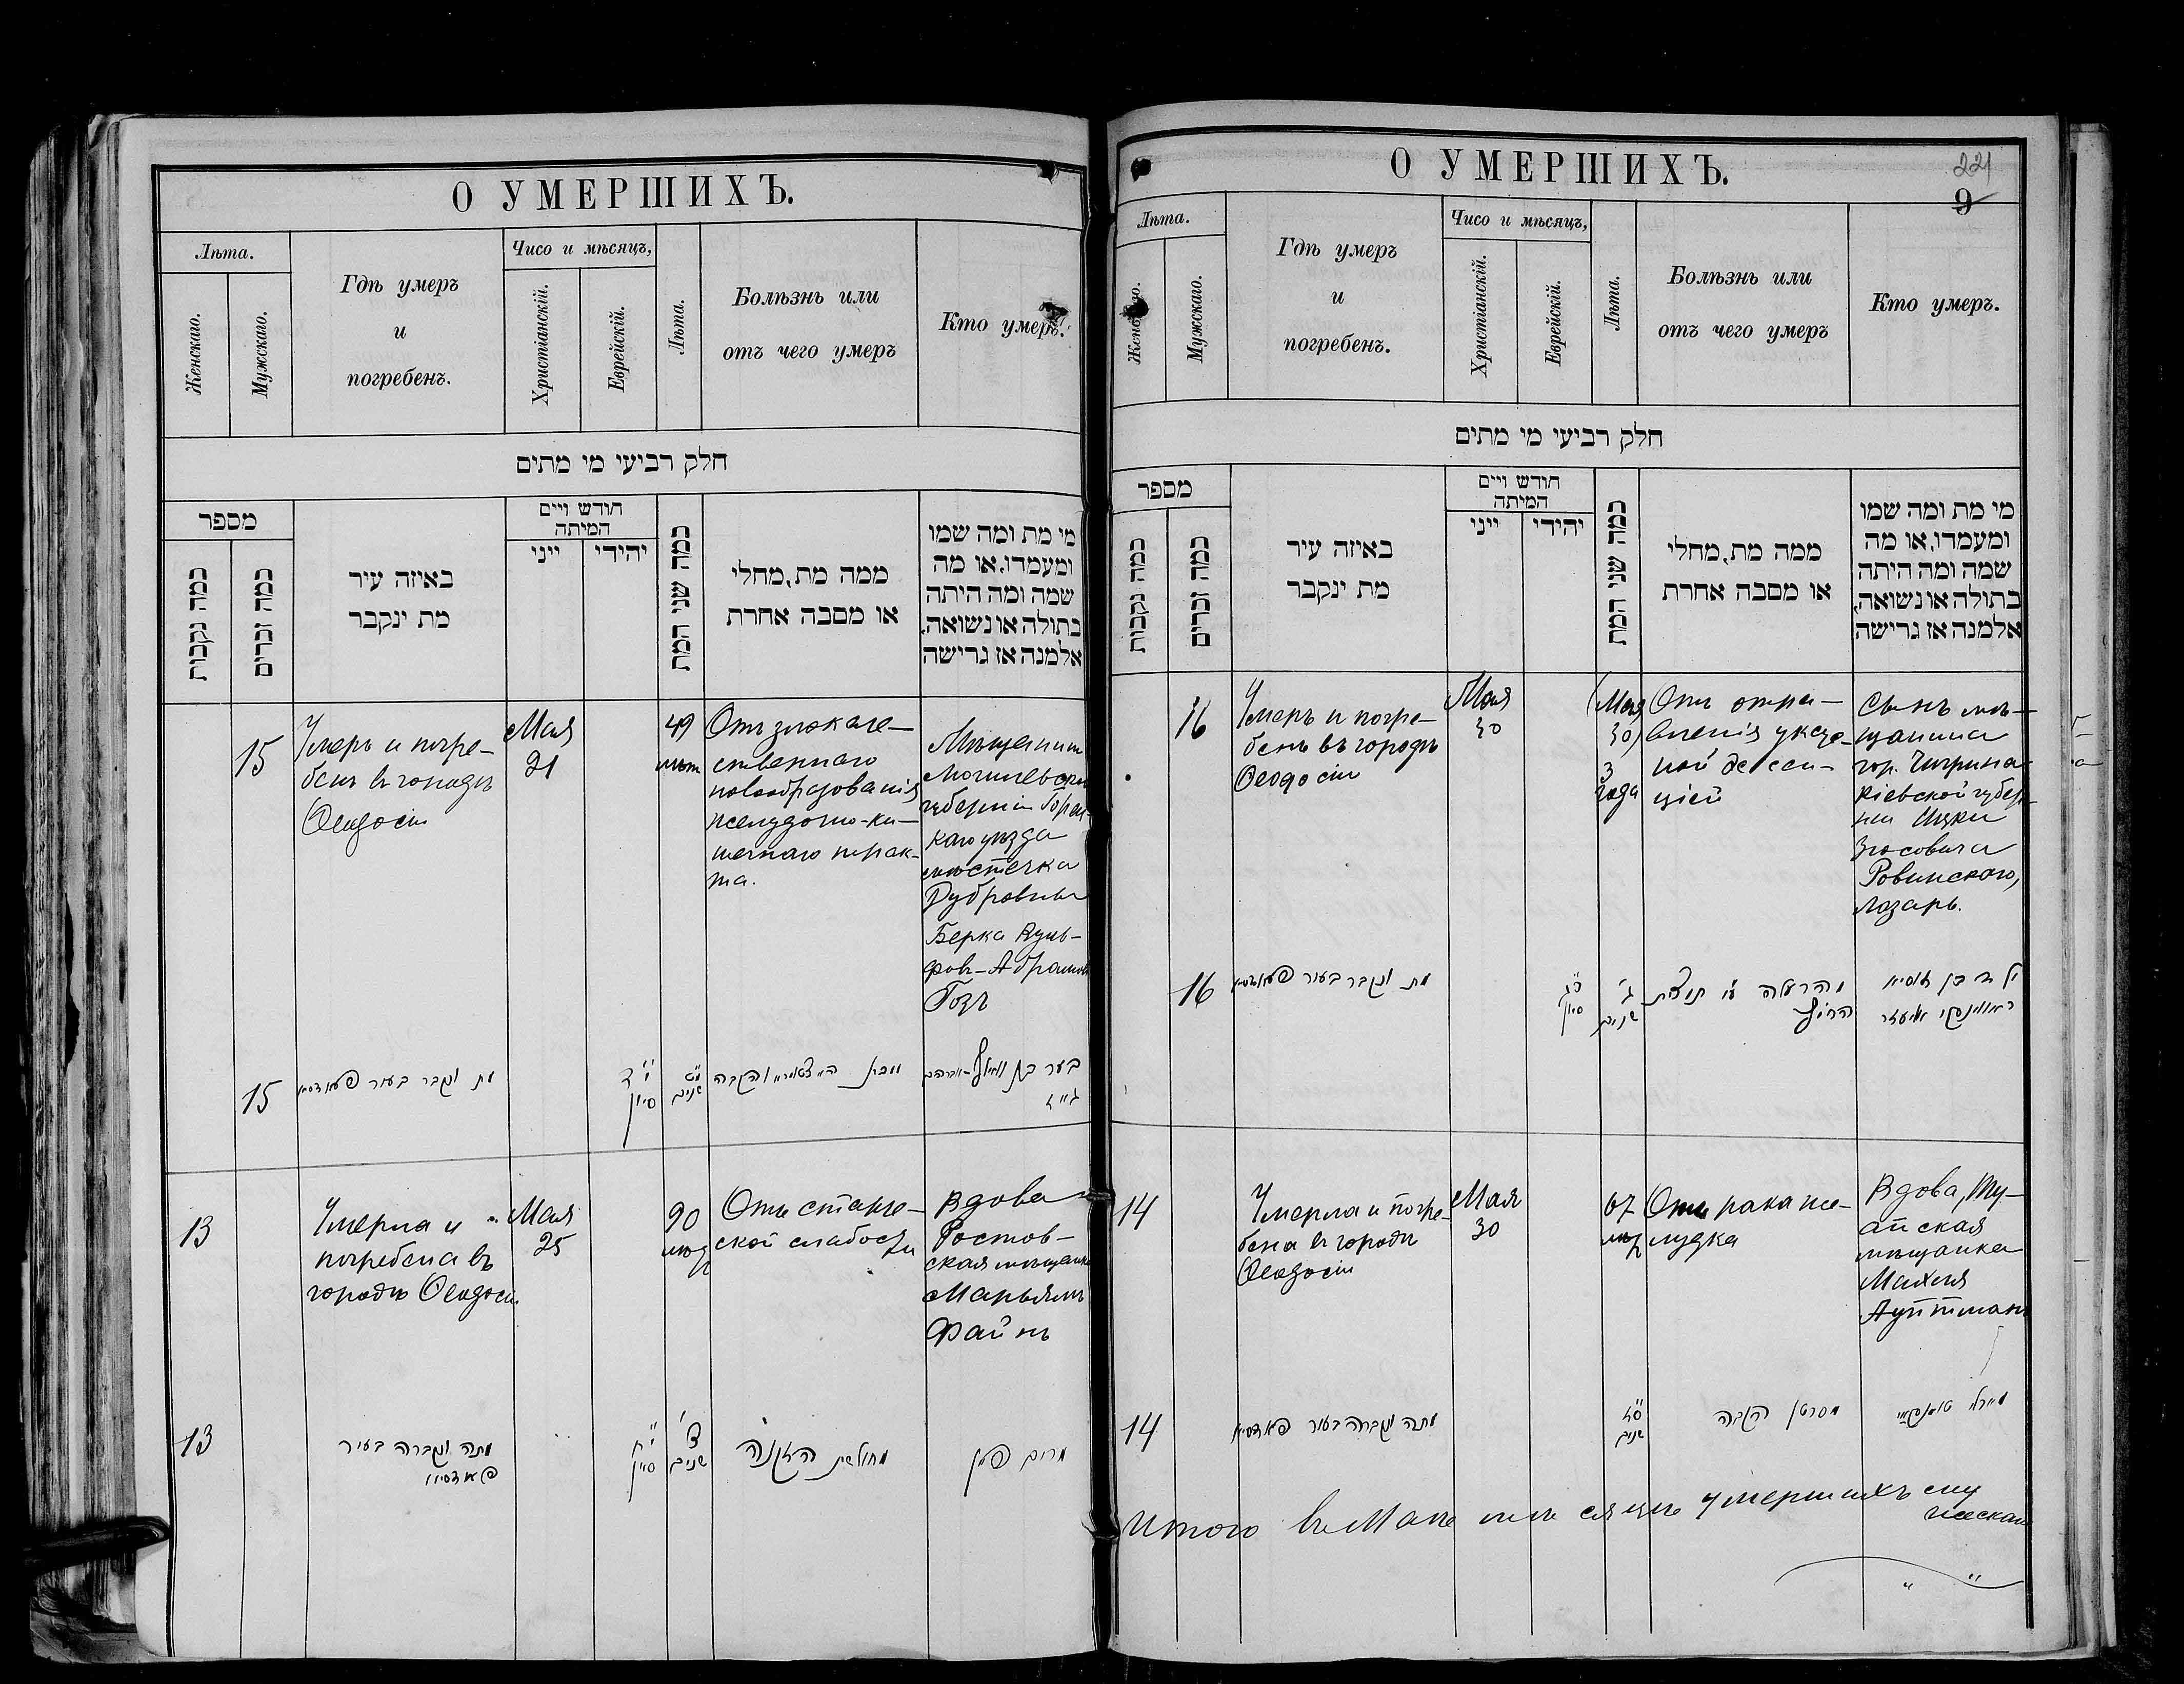 О УМЕРШИХЪ.
Лѣта.
Женскаго.
Мужскаго.
Гдѣ умеръ
и
погребенъ.
Чисо и мѣсяцъ,
Христіанскій.
Еврейскій.
Лѣта.
Болѣзнь или
отъ чего умеръ
Кто умеръ.
חלק רביעי מי מתים
מספר
כמה נקבות
כמה זכרים
באיזה עיר
מת ינקבר
חודש ויים
המיתה
ייני
יהידי
כמה שני המת
ממה מת, מחלי
או מסבה אחרת
מי מת ומה שמו
ומעמדו, או מה
שמה ומה היתה
בתולה או נשואה,
אלמנה אז גרישה
15
Умеръ и погре-
бенъ въ городѣ
Ѳеодосіи
Мая
21
49
лѣт
Отъ злокаче-
ственнаго
новообразованія
желудочно-ки-
шечнаго трак-
та.
Мѣщанинъ
Могилевской
губерніи Горец-
каго уѣзда
мѣстечка
Дубровны
Берка Вуль-
фов-Абрамов
Гозъ
15
מת ונקבר בעיר
סיון
שנים
13
Умерла и
погребена въ
городѣ Ѳеодосіи.
Мая
25
90
лѣтъ
Отъ старче-
ской слабости
Вдова
Ростов-
ская мѣщанка
Марьямъ
Файнъ
13
מתה ונקברה בעיר
סיון
צ' שנים
מחולשת הזקנה
מרים פיין
О УМЕРШИХЪ.
221
9
Лѣта.
Женскаго.
Мужскаго.
Гдѣ умеръ
и
погребенъ.
Чисо и мѣсяцъ,
Христіанскій.
Еврейскій.
Лѣта.
Болѣзнь или
отъ чего умеръ
Кто умеръ.
חלק רביעי מי מתים
מספר
כמה נקבות
כמה זכרים
באיזה עיר
מת ינקבר
חודש ויים
המיתה
ייני
יהידי
כמה שני המת
ממה מת, מחלי
או מסבה אחרת
מי מת ומה שמו
ומעמדו, או מה
שמה ומה היתה
בתולה או נשואה,
אלמנה אז גרישה
16
Умеръ и погре-
бенъ въ городѣ
Ѳеодосіи
Мая
30
(Мая
30)
3
года
Отъ отра-
вленія уксус-
ной эссен-
ціей
Сынъ мѣ-
щанина
гор. Чигрина
Кіевской губер-
ніи Ицки
Зюсовича
Ровинскаго,
Лазарь.
16
מת ונקבר בעיר
סיון
ג' שנים
14
Умерла и погре-
бена въ городѣ
Ѳеодосіи
Мая
30
67
лѣтъ
Отъ рака же-
лудка
Вдова, Ту-
апская
мѣщанка
Махля
Ауптманъ
14
מתה ונקברה בעיר
שנים
מסרטן הקבה
Итого въ Маѣ мѣсяцѣ умершихъ